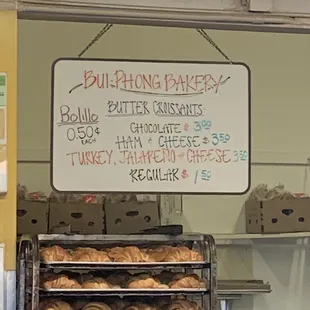 BUI-PHONG BAKERY
BUTTER CROISSANTS
Bolillo
0.50¢
EACH
CHOCOLATE $ 3.00
HAM & CHEESE $ 3.50
TURKEY, JALAPEÑO & CHEESE 3.50
REGULAR $ 1.50